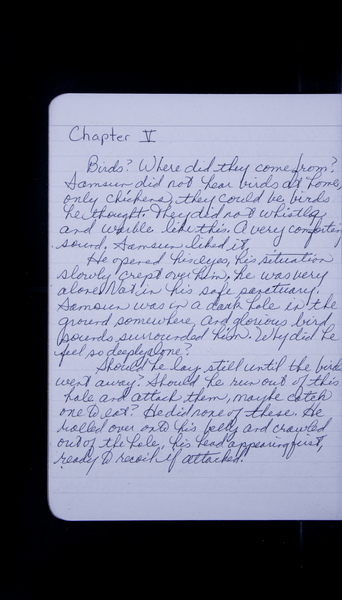 Chapter V
Birds? Where did they come from?
Samsun did not hear birds at home,
only chickens, they could be birds
he thought. They did not whistle
and warble like this. A very comforting
sound. Samsun liked it.
He opened his eyes, his situation
slowly crept over him. He was very
alone. Not in his safe sanctuary.
Samsun was in a dark hole in the
ground somewhere, and glorious bird
sounds surrounded him. Why did he
feel so deeply alone?
Should he lay still until the birds
went away? Should he run out of this
hole and attack them, maybe catch
one to eat? He did none of these. He
rolled over onto his belly and crawled
out of the hole, his head appearing first,
ready to recoil if attacked.